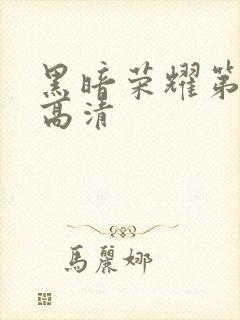 黑暗荣耀第
高清
馬麗娜